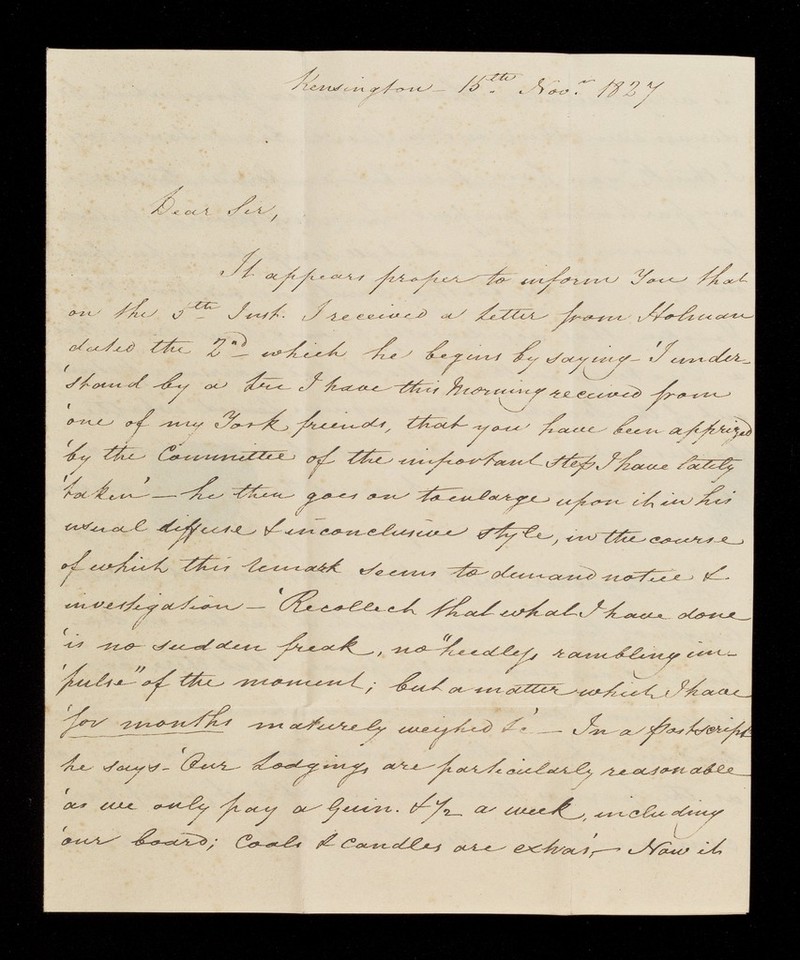 Kensington - 15th. Novr. 1827
Dear Sir,
It appears proper to inform You that
on the 5th Inst. I received a Letter from Holman
dated the 2nd which he begins by saying - 'I under-
'stand by a tre I have this Morning received from
'one of my York friends, that you have been apprized
'by the Committee of the important Step I have lately
'taken' — he then goes on to enlarge upon it in his
usual diffuse & inconclusive style, in the course
of which this remark seems to demand notice &
investigation — 'Recollect that what I have done
'is no sudden freak, no "heedless rambling im-
'pulse" of the moment; but a matter which I have
'for months maturely weighed &c' — In a Postscript
he says - 'Our Lodgings are particularly reasonable
'as we only pay a Guin. & ½ a week, including
'our board; Coals & Candles are extras', — Now it